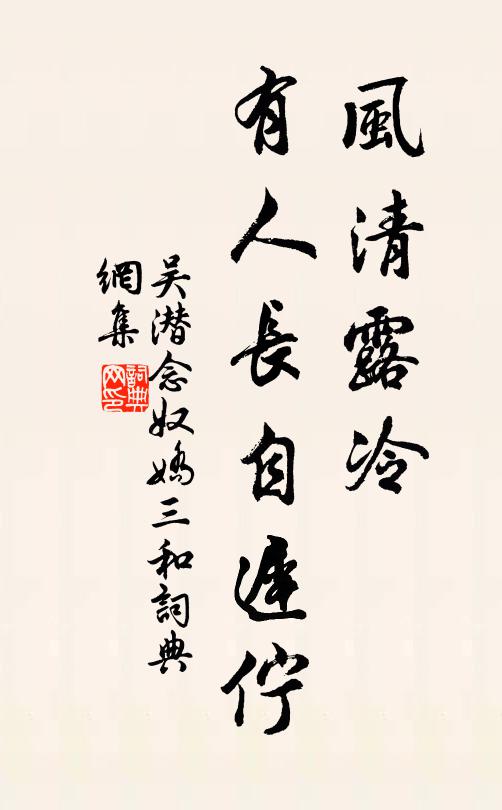 風清露冷
有人長自遲佇
吴潜念奴嬌三和詞典
網集
詞典
网印